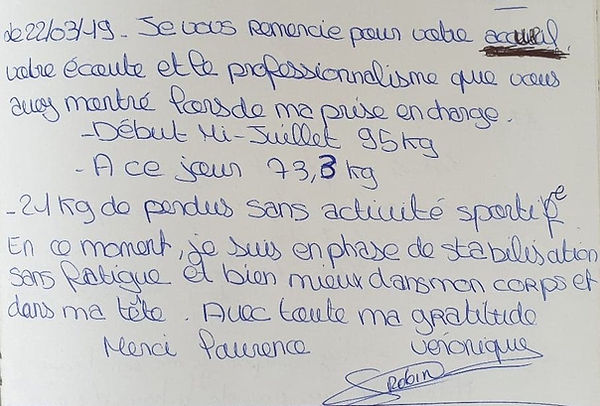 de 22/03/19 - Je vous remercie pour votre accueil,
votre écoute et le professionnalisme que vous
avez montré lors de ma prise en charge.
- Début Mi-Juillet 95kg
- A ce jour 73,3 kg
- 21 kg de perdus sans activité sportive
En ce moment, je suis en phase de stabilisation
sans fatigue et bien mieux dans mon corps et
dans ma tête. Avec toute ma gratitude
Merci Laurence Véronique
Robin